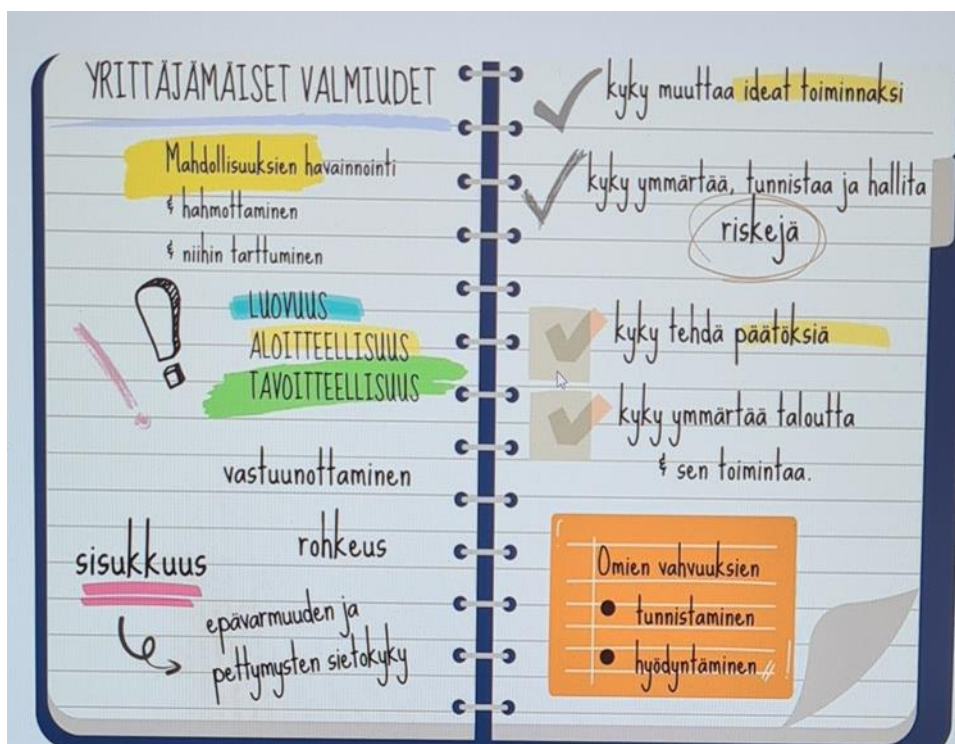 YRITTÄJÄMÄISET VALMIUDET
Mahdollisuuksien havainnointi
& hahmottaminen
& niihin tarttuminen
LUOVUUS
ALOITTEELLISUUS
TAVOITTEELLISUUS
vastuunottaminen
rohkeus
sisukkuus
epävarmuuden ja
pettymysten sietokyky
kyky muuttaa ideat toiminnaksi
kyky ymmärtää, tunnistaa ja hallita
riskejä
kyky tehdä päätöksiä
kyky ymmärtää taloutta
& sen toimintaa.
Omien vahvuuksien
• tunnistaminen
• hyödyntäminen